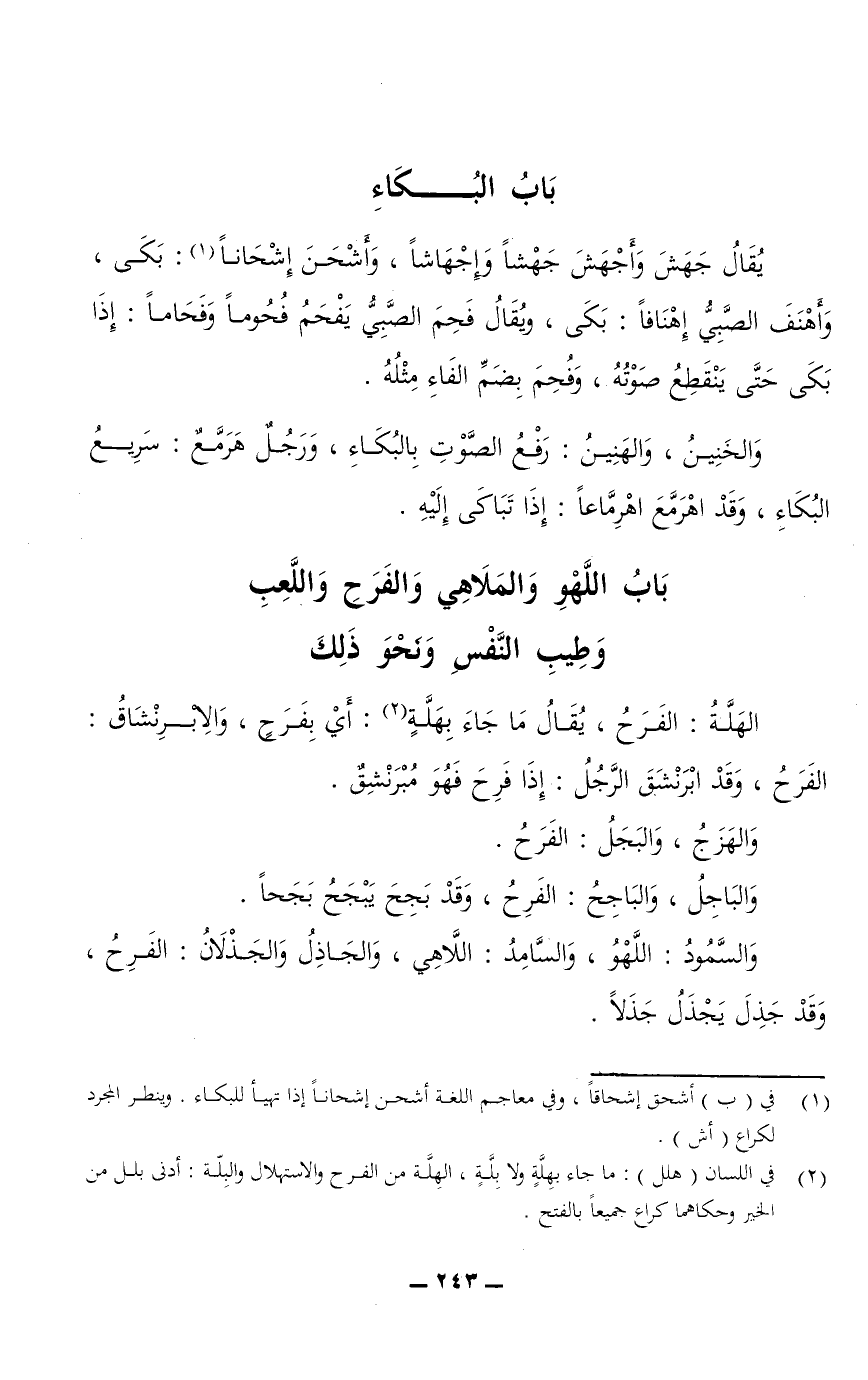 بَابُ البُـــــكَاءِ
يُقَالُ جَهَشَ وَأَجْهَشَ جَهْشاً وَإِجْهَاشاً ، وَأَشْحَـنَ إِشْحَانـاً(١) : بَكَـى ،
وَأَهْنَفَ الصَّبِيُّ إِهْنَافاً : بَكَى ، ويُقَالُ فَحِمَ الصَّبِيُّ يَفْحَمُ فُحُومـاً وَفَحَامـاً : إِذَا
بَكَى حَتَّى يَنْقَطِعُ صَوْتُهُ ، وَفُحِمَ بِضَمِّ الفَاءِ مِثْلُهُ .
وَالخَنِينُ ، وَالهَنِينُ : رَفْعُ الصَّوْتِ بِالبُكَـاءِ ، وَرَجُـلٌ هَرَمَّـعٌ : سَرِيـعُ
البُكَاءِ ، وَقَدْ اهْرَمَّعَ اهْرِمَّاعاً : إِذَا تَبَاكَى إِلَيْهِ .
بَابُ اللَّهْوِ وَالمَلَاهِي وَالفَرَحِ وَاللَّعِبِ
وَطِيبِ النَّفْسِ وَنَحْوَ ذَلِكَ
الهَلَّـةُ : الفَـرَحُ ، يُقَـالُ مَا جَاءَ بِهَلَّـةٍ(٢) : أَيْ بِفَـرَحٍ ، وَالِابْـرِنْشَاقُ :
الفَرَحُ ، وَقَدْ ابْرَنْشَقَ الرَّجُلُ : إِذَا فَرِحَ فَهُوَ مُبْرَنْشِقٌ .
وَالهَزَجُ ، وَالبَجَلُ : الفَرَحُ .
وَالبَاجِلُ ، وَالبَاجِحُ : الفَرِحُ ، وَقَدْ بَجِحَ يَبْجَحُ بَجَحاً .
وَالسَّمُودُ : اللَّهْوُ ، وَالسَّامِدُ : اللَّاهِي ، وَالجَـاذِلُ وَالجَـذْلَانُ : الفَـرِحُ ،
وَقَدْ جَذِلَ يَجْذَلُ جَذَلاً .
(١) في ( ب ) أشحق إشحاقاً ، وفي معاجـم اللغة أشحـن إشحانـاً إذا تهيـأ للبكـاء . وينطـر المجرد
لكراع ( أش ) .
(٢) في اللسان ( هلل ) : ما جاء بهِلَّةٍ ولا بِلَّـةٍ ، الهِلَّـة من الفـرح والاستهلال والبِلّـة : أدنى بلـل من
الخير وحكاهما كراع جميعاً بالفتح .
— ٢٤٣ —